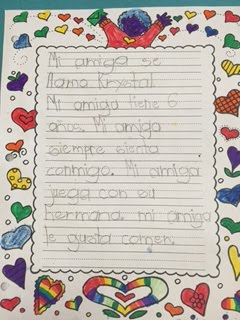 Mi amiga se
llama Krystal
Mi amiga tiene 6
años. Mi amiga
siempre sienta
conmigo. Mi amiga
juega con su
hermana. mi amiga
le gusta comer.